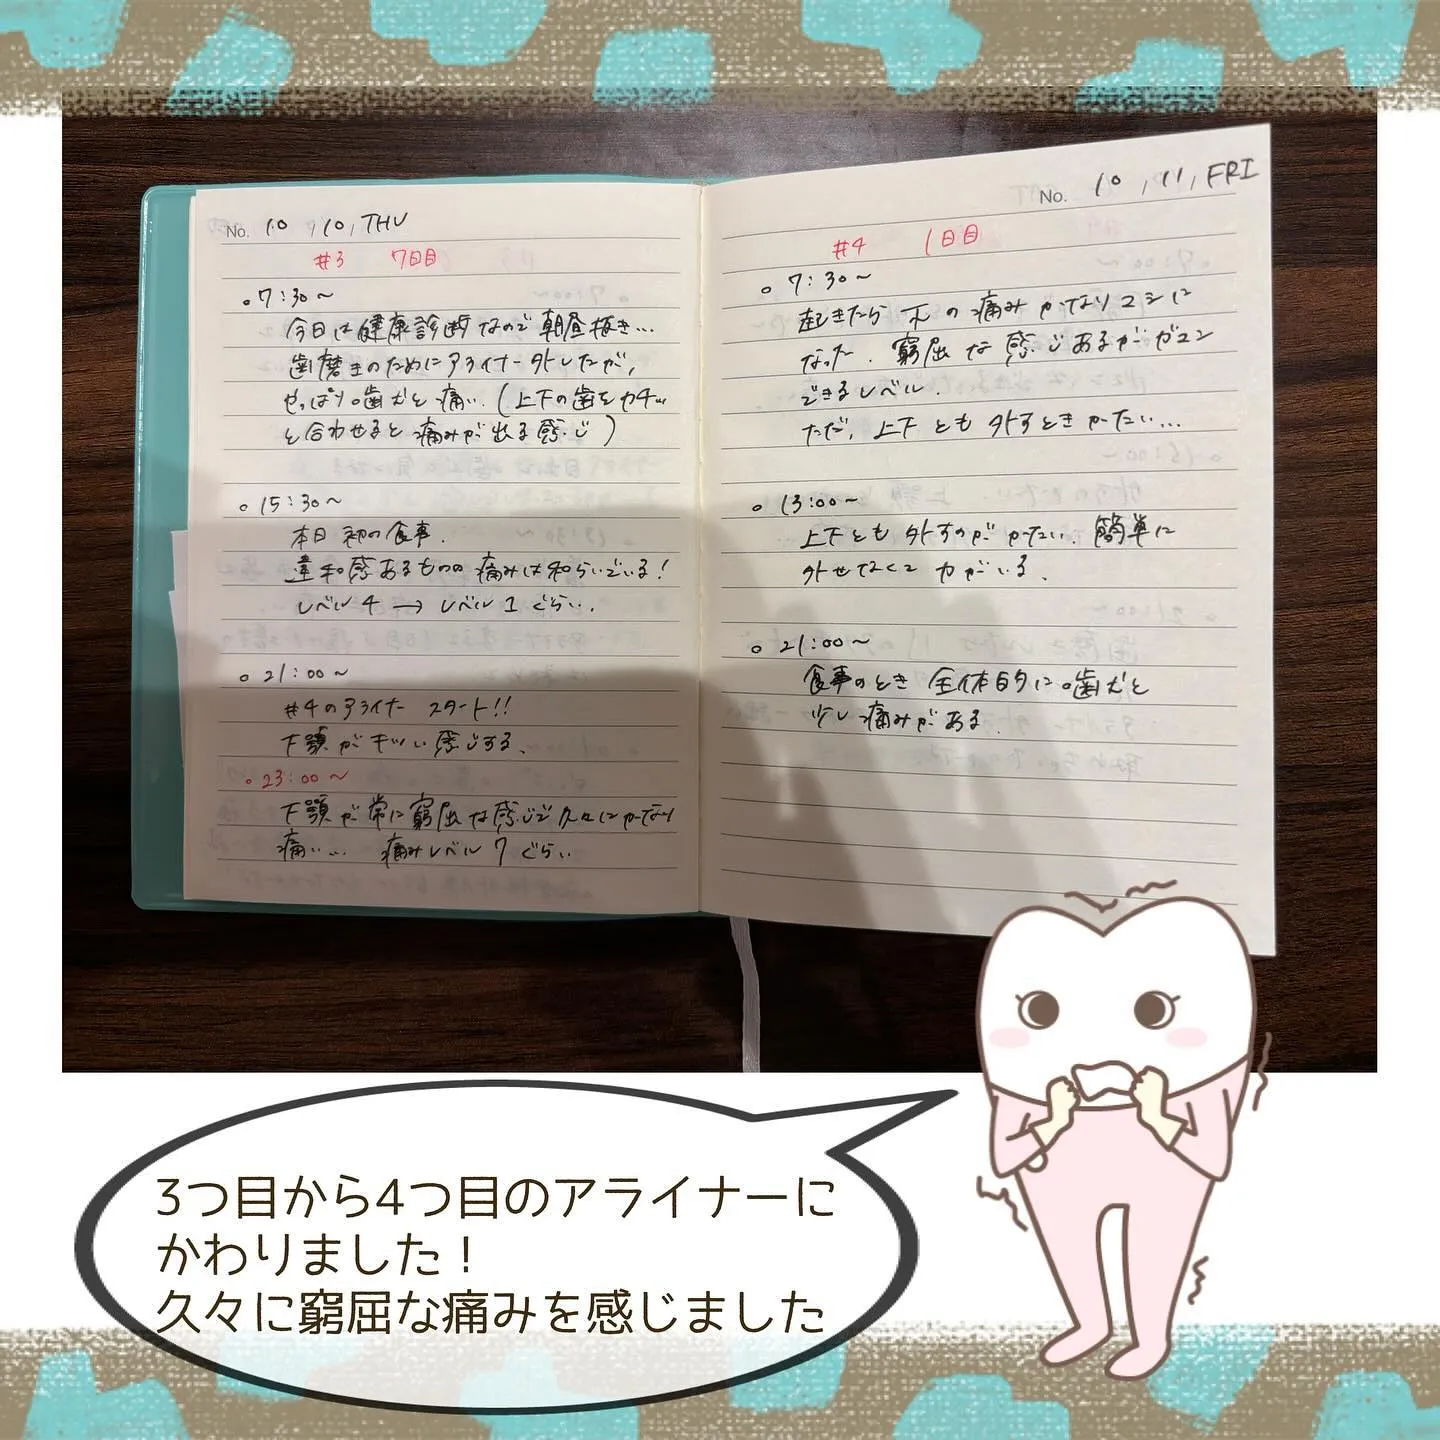 No. 10, 10, THU
#3 7日目
○7:30〜
今日は健康診断なので朝昼抜き…
歯磨きのためにアライナー外したが、
やっぱり歯犬と痛い。(上下の歯をカチッ
と合わせると痛みが出る感じ)
○15:30〜
本日初の食事。
違和感あるものの痛みは和らいでいる!
レベル4→レベル1ぐらい。
○21:00〜
#4のアライナースタート!!
下顎がキツい感じする。
○23:00〜
下顎が常に窮屈な感じで久々にかなり
痛い… 痛みレベル7ぐらい
No. 10, 11, FRI
#4 1日目
○7:30〜
起きたら下の痛みかなりマシに
なった。窮屈な感じあるがガマン
できるレベル。
ただ、上下とも外すときかたい…
○13:00〜
上下とも外すのがかたい。簡単に
外せなくて力がいる。
○21:00〜
食事のとき全体的に歯犬と
少し痛みがある。
3つ目から4つ目のアライナーに
かわりました!
久々に窮屈な痛みを感じました